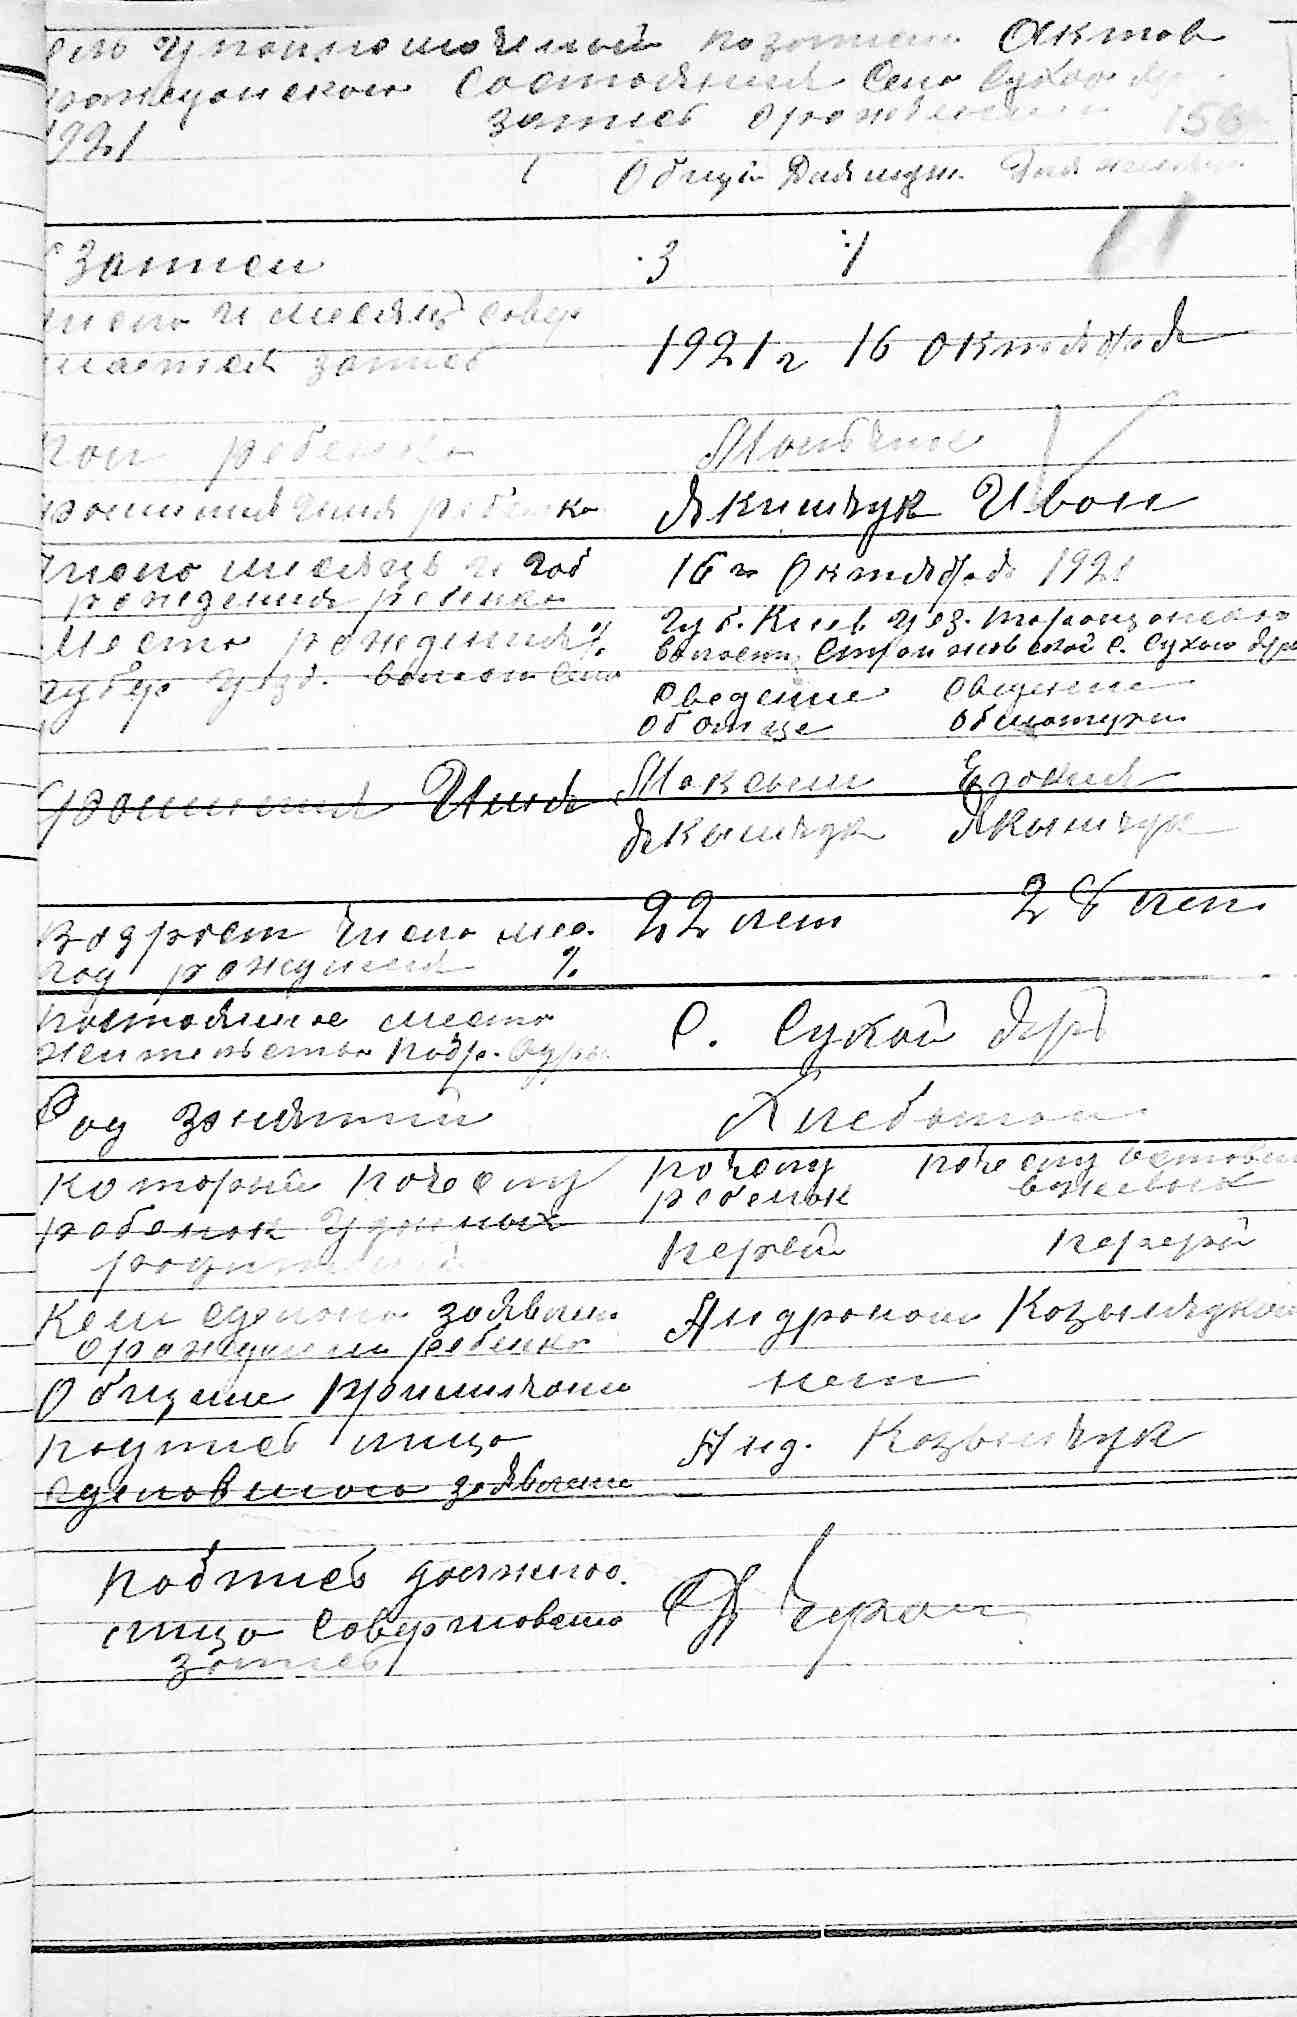 Уполномоченый по записи Актов
гражданского Состояния Село Сухой Яр
Запись о рождении 156
1921
Общий Для муж. Для женск.
№ Записи 3 1
число и месяц совер
шается запись 1921 г 16 октября
пол ребенка Мальчик
фамилия имя ребенка Якимчук Иван
Число месяць и год
рождения ребенка 16 го Октября 1921
Место рождения
губер уезд. волост Село
Губ. Киев. уез. Таращанского
волости С. Сухой Яр
Сведение Сведение
об отце об матери
Фамилия Имя
Максым
Якымчук Якымчук
Возраст число мес.
год рождения
22 лет 28 лет
Постоянное место
жительство С. Сухой Яръ
Род занятий Хлебопаш
Который по счету
ребенок у данных
родителей
по счету
ребенок
по счету
в живых
первый первый
Кем сделано заявлен
о рождении ребенка Андроном Козымчуком
Общие Примичани нет
подпись лицо
сделавшого заявлени
Анд. Козымчук
Подпись должнос.
лицо Совершовшого
запись